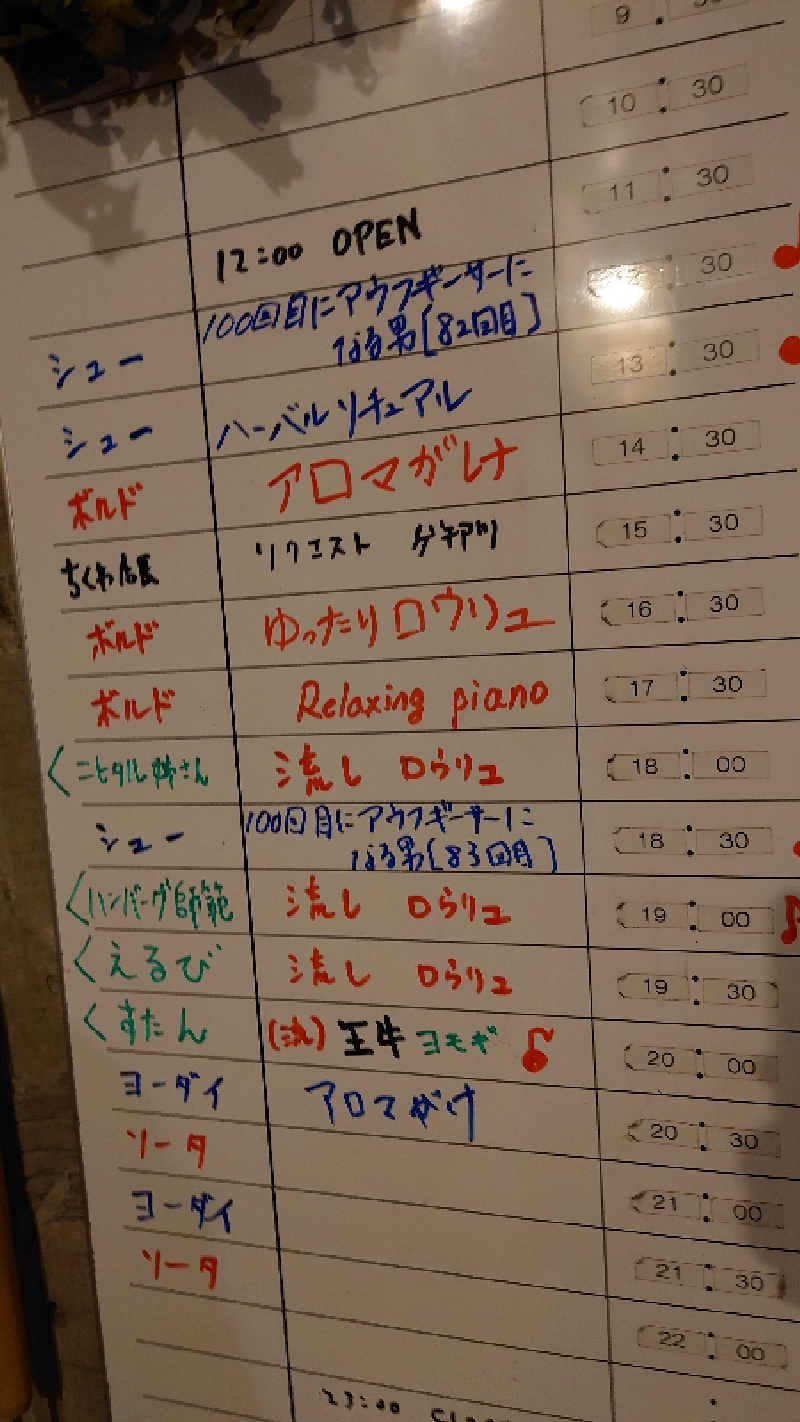 9 : 30
10 : 30
11 : 30
12:00 OPEN
シュー 100回目にアウフギーサーに : 30
なる男[82回目]
シュー ハーバルリチュアル 13 : 30
ボルド アロマがけ 14 : 30
ちくわ店長 リクエスト 15 : 30
ボルド ゆったりロウリュ 16 : 30
ボルド Relaxing piano 17 : 30
く 流し ロウリュ 18 : 00
シュー 100回目にアウフギーサーに 18 : 30
なる男[83回目]
くハンバーグ師範 流し ロウリュ 19 : 00
くえるび 流し ロウリュ 19 : 30
くすたん (流) ヨモギ 20 : 00
ヨーダイ アロマがけ 20 : 30
ソータ 21 : 00
ヨーダイ 21 : 30
ソータ 22 : 00
23:00 Close